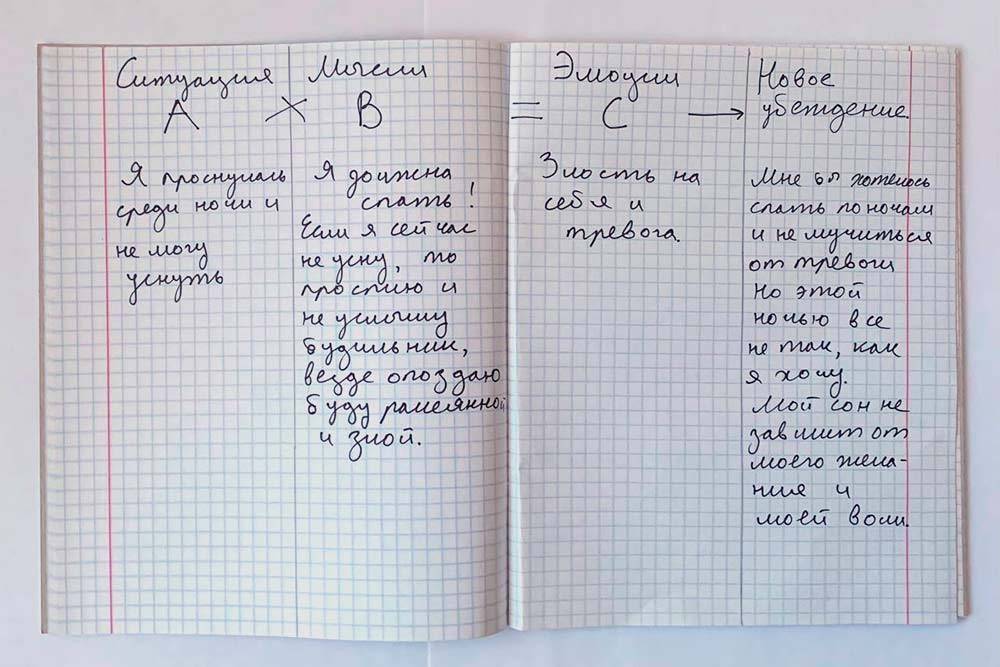 Ситуация
A
×
Мысли
B
=
Эмоции
C
→
Новое
убеждение
Я проснулась
среди ночи и
не могу
уснуть
Я должна
спать!
Если я сейчас
не усну, то
просплю и
не услышу
будильник,
везде опоздаю
буду рассеянной
и злой.
Злость на
себя и
тревога.
Мне бы хотелось
спать по ночам
и не мучиться
от тревоги
Но этой
ночью все
не так, как
я хочу.
Мой сон не
зависит от
моего жела-
ния и
моей воли.